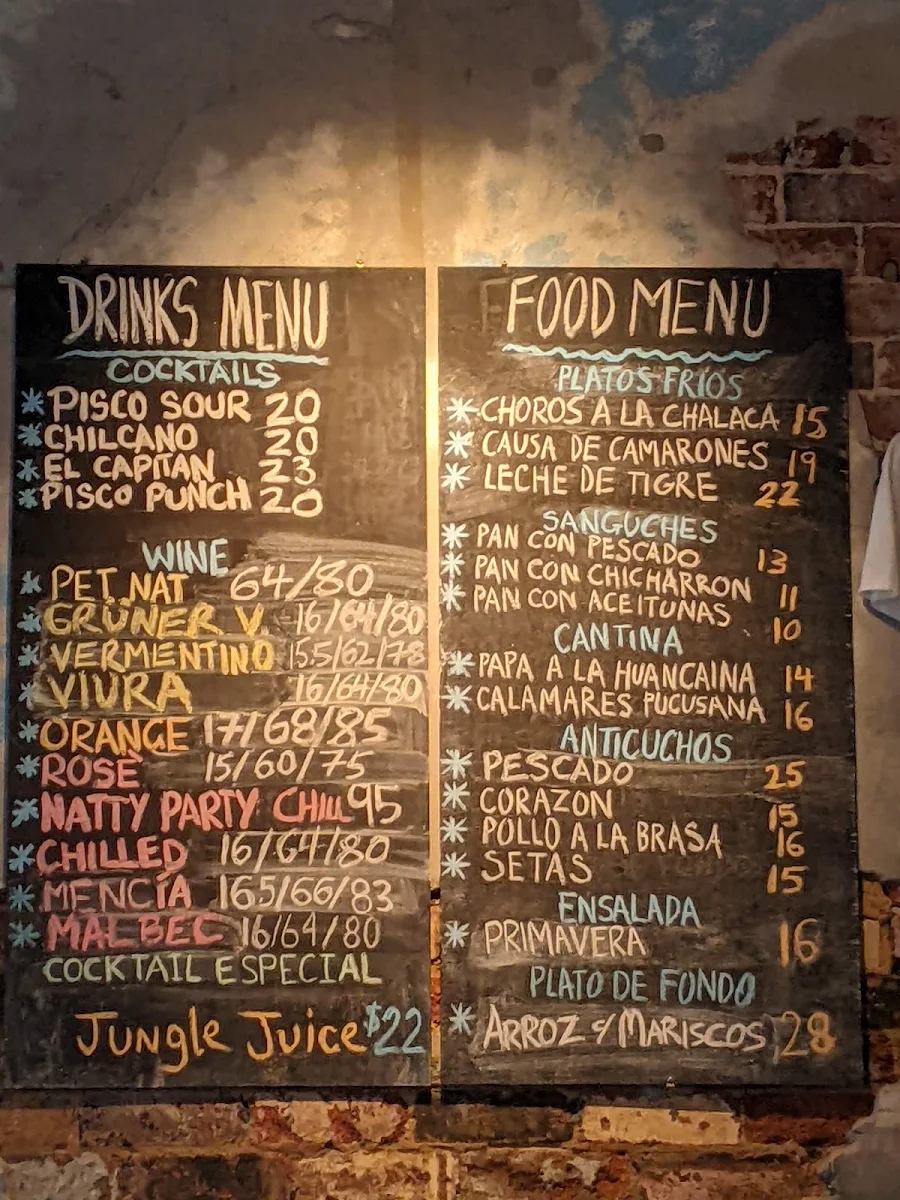 DRINKS MENU
COCKTAILS
* PISCO SOUR 20
* CHILCANO 20
* EL CAPITAN 23
* PISCO PUNCH 20
WINE
* PET NAT 64/80
* GRÜNER V 16/64/80
* VERMENTINO 15.5/62/78
* VIURA 16/64/80
* ORANGE 17/68/85
* ROSÈ 15/60/75
* NATTY PARTY CHILL 95
* CHILLED 16/64/80
* MENCÍA 16.5/66/83
* MALBEC 16/64/80
COCKTAIL ESPECIAL
JUNGLE JUICE $22
FOOD MENU
PLATOS FRIOS
* CHOROS A LA CHALACA 15
* CAUSA DE CAMARONES 19
* LECHE DE TIGRE 22
SANGUCHES
* PAN CON PESCADO 13
* PAN CON CHICHARRON 11
* PAN CON ACEITUNAS 10
CANTINA
* PAPA A LA HUANCAINA 14
* CALAMARES PUCUSANA 16
ANTICUCHOS
* PESCADO 25
* CORAZON 15
* POLLO A LA BRASA 16
* SETAS 15
ENSALADA
* PRIMAVERA 16
PLATO DE FONDO
* ARROZ c/ MARISCOS 28